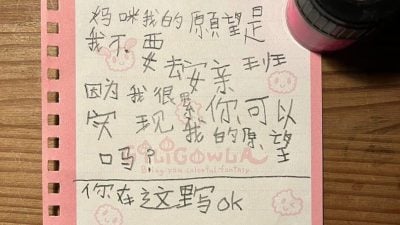 妈咪我的願望是
我不要
去安亲班
因为我很累你可以
实现我的原望
吗?
SOLIGOWLA
Bring you colorful fantasy
你在这里写ok